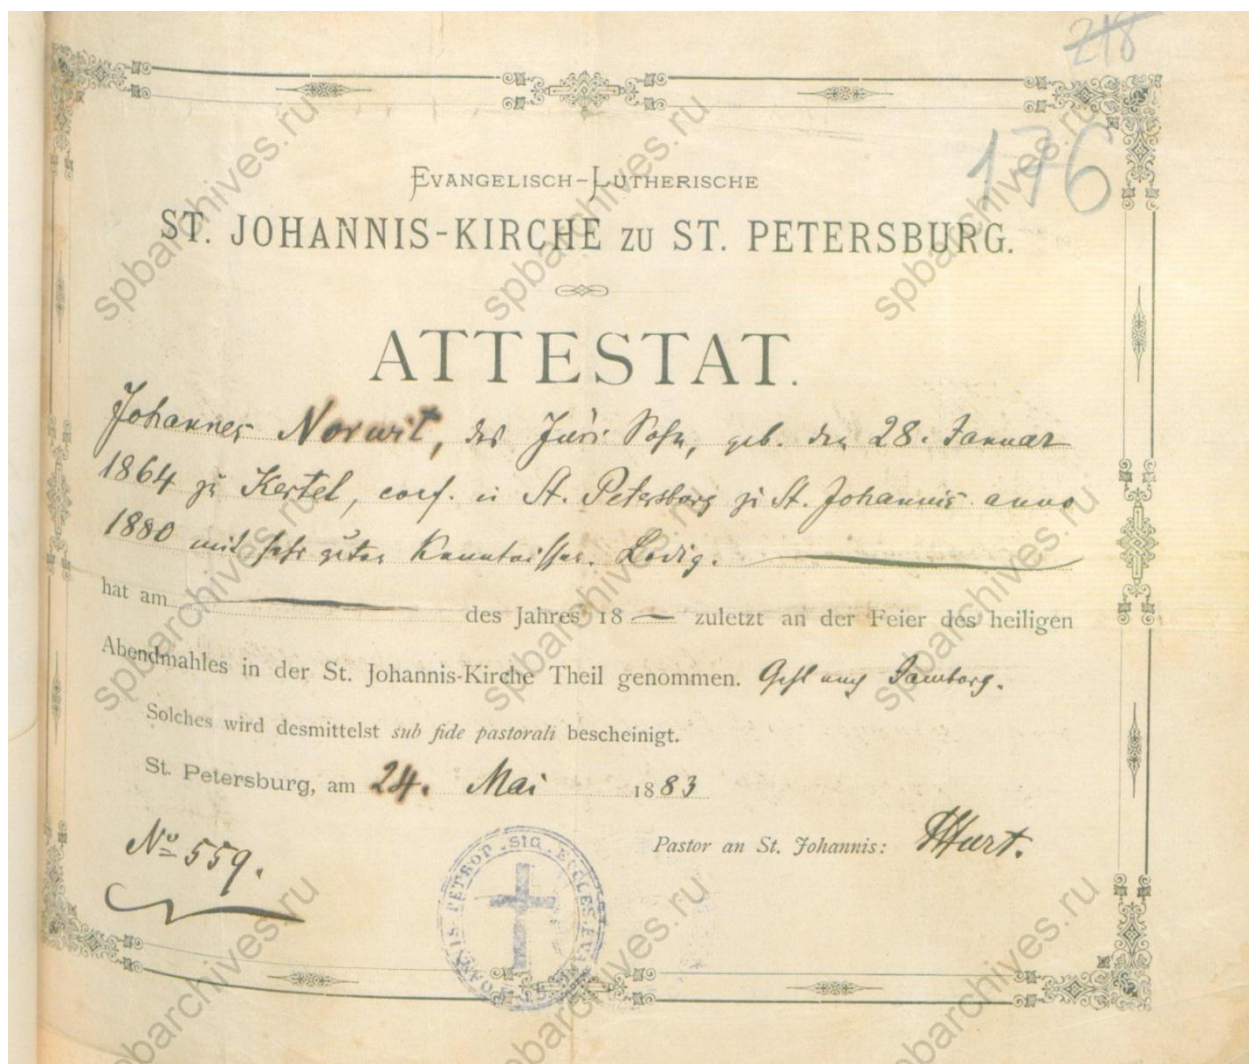 218
176
EVANGELISCH-LUTHERISCHE
ST. JOHANNIS-KIRCHE ZU ST. PETERSBURG.
ATTESTAT.
Johannes Norwit, des Jüri Sohn, geb. den 28. Januar
1864 zu Kertel, conf. in St. Petersburg zu St. Johannis anno
1880 mit sehr guten Kenntnissen. Ledig.
hat am des Jahres 18 — zuletzt an der Feier des heiligen
Abendmahles in der St. Johannis-Kirche Theil genommen. Geht nach Jamburg.
Solches wird desmittelst sub fide pastorali bescheinigt.
St. Petersburg, am 24. Mai 1883
Pastor an St. Johannis: Hurt.
No 559.
SIG. ECCLES. EVANG. IOANNIS PETROP.
spbarchives.ru